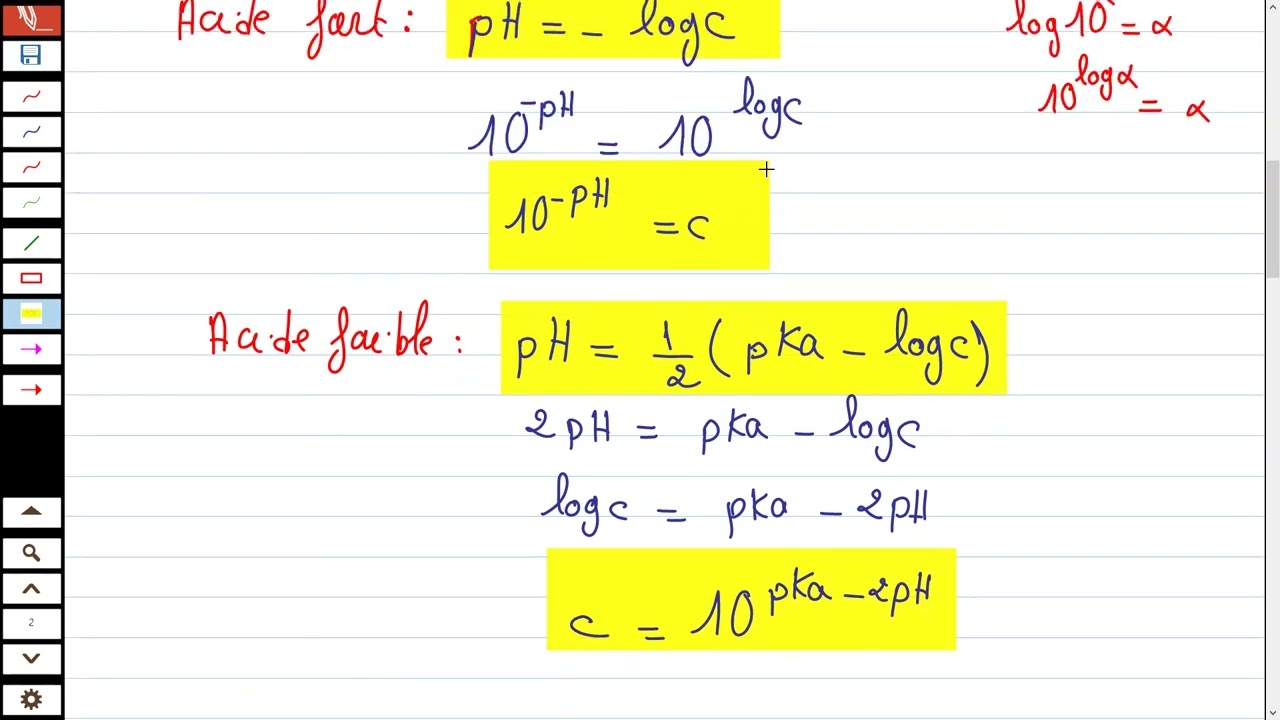 Acide fort : pH = - log c
log 10^α = α
10^-pH = 10^log c
10^log α = α
10^-pH = c
Acide faible : pH = 1/2 ( pKa - log c )
2 pH = pKa - log c
log c = pKa - 2 pH
c = 10^pKa - 2 pH
2